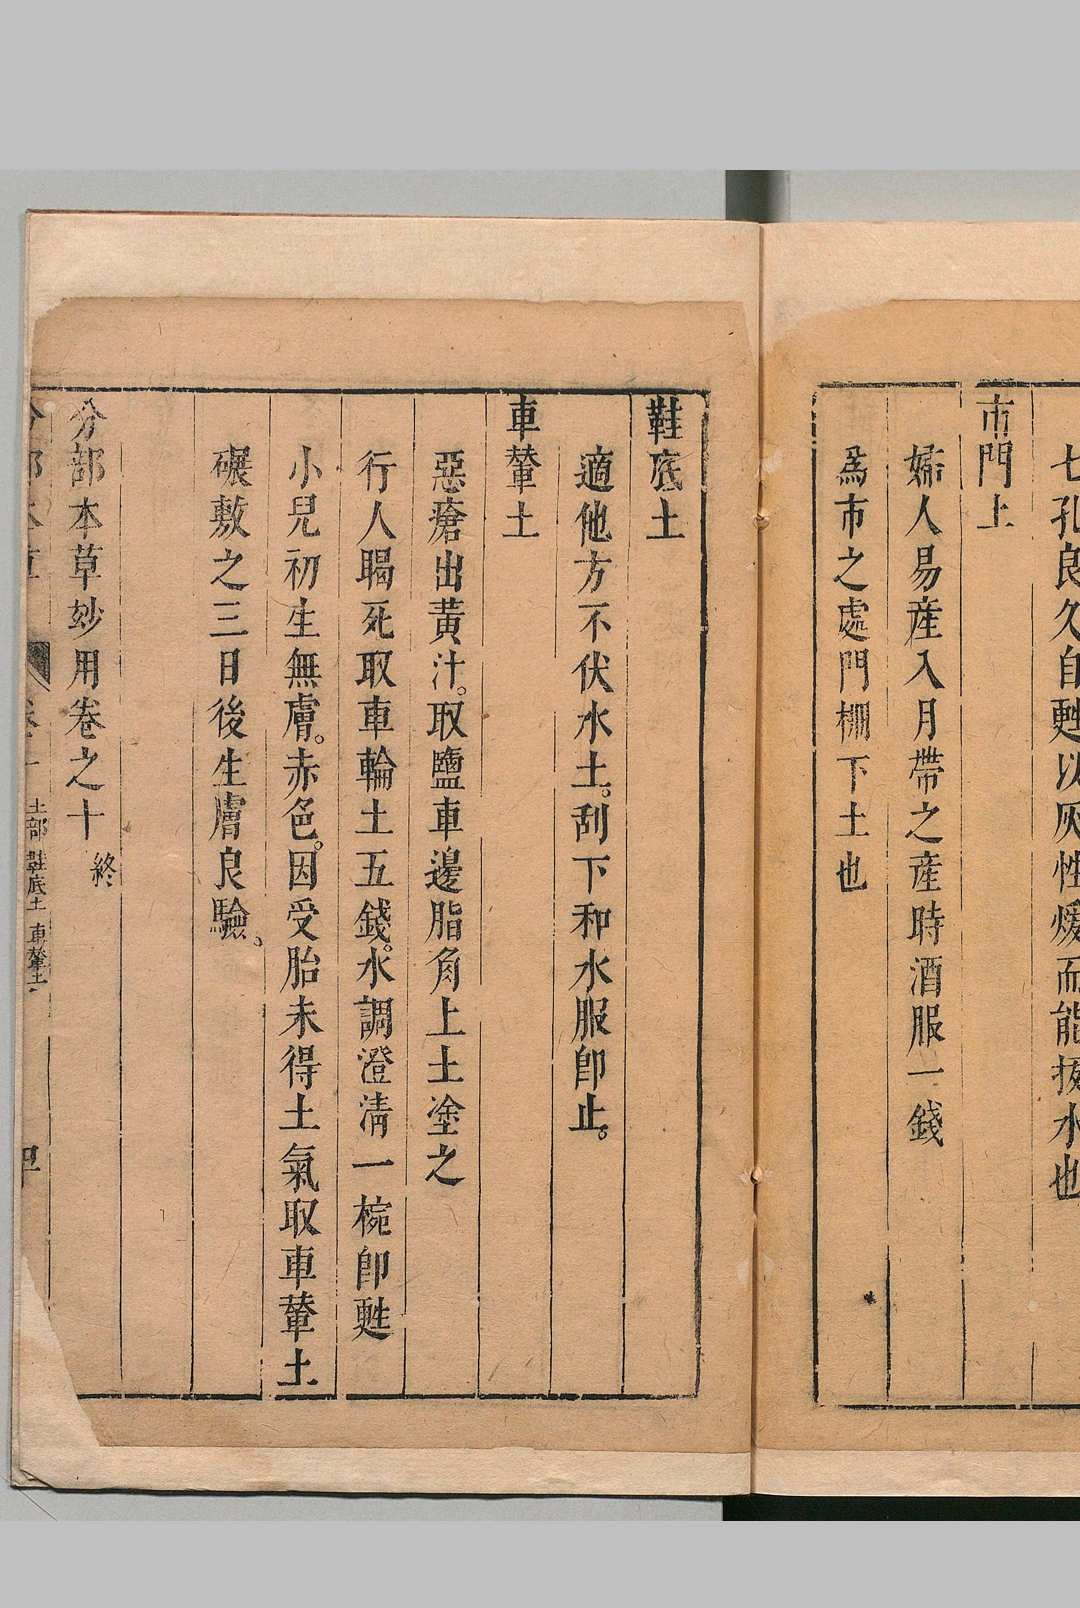 七孔良久自甦以灰性煖而能拔水也
市門土
婦人易産入月帶之產時酒服一錢
爲市之處門柵下土也
鞋底土
適他方不伏水土。刮下和水服卽止。
車輦土
惡瘡出黃汁。取鹽車邊脂角上土塗之
行人暍死取車輪土五錢。水調澄清一椀卽甦
小兒初生無膚。赤色。因受胎未得土氣取車輦土
碾敷之三日後生膚良驗。
分部本草妙用卷之十 終
土部 鞋底土 車輦土